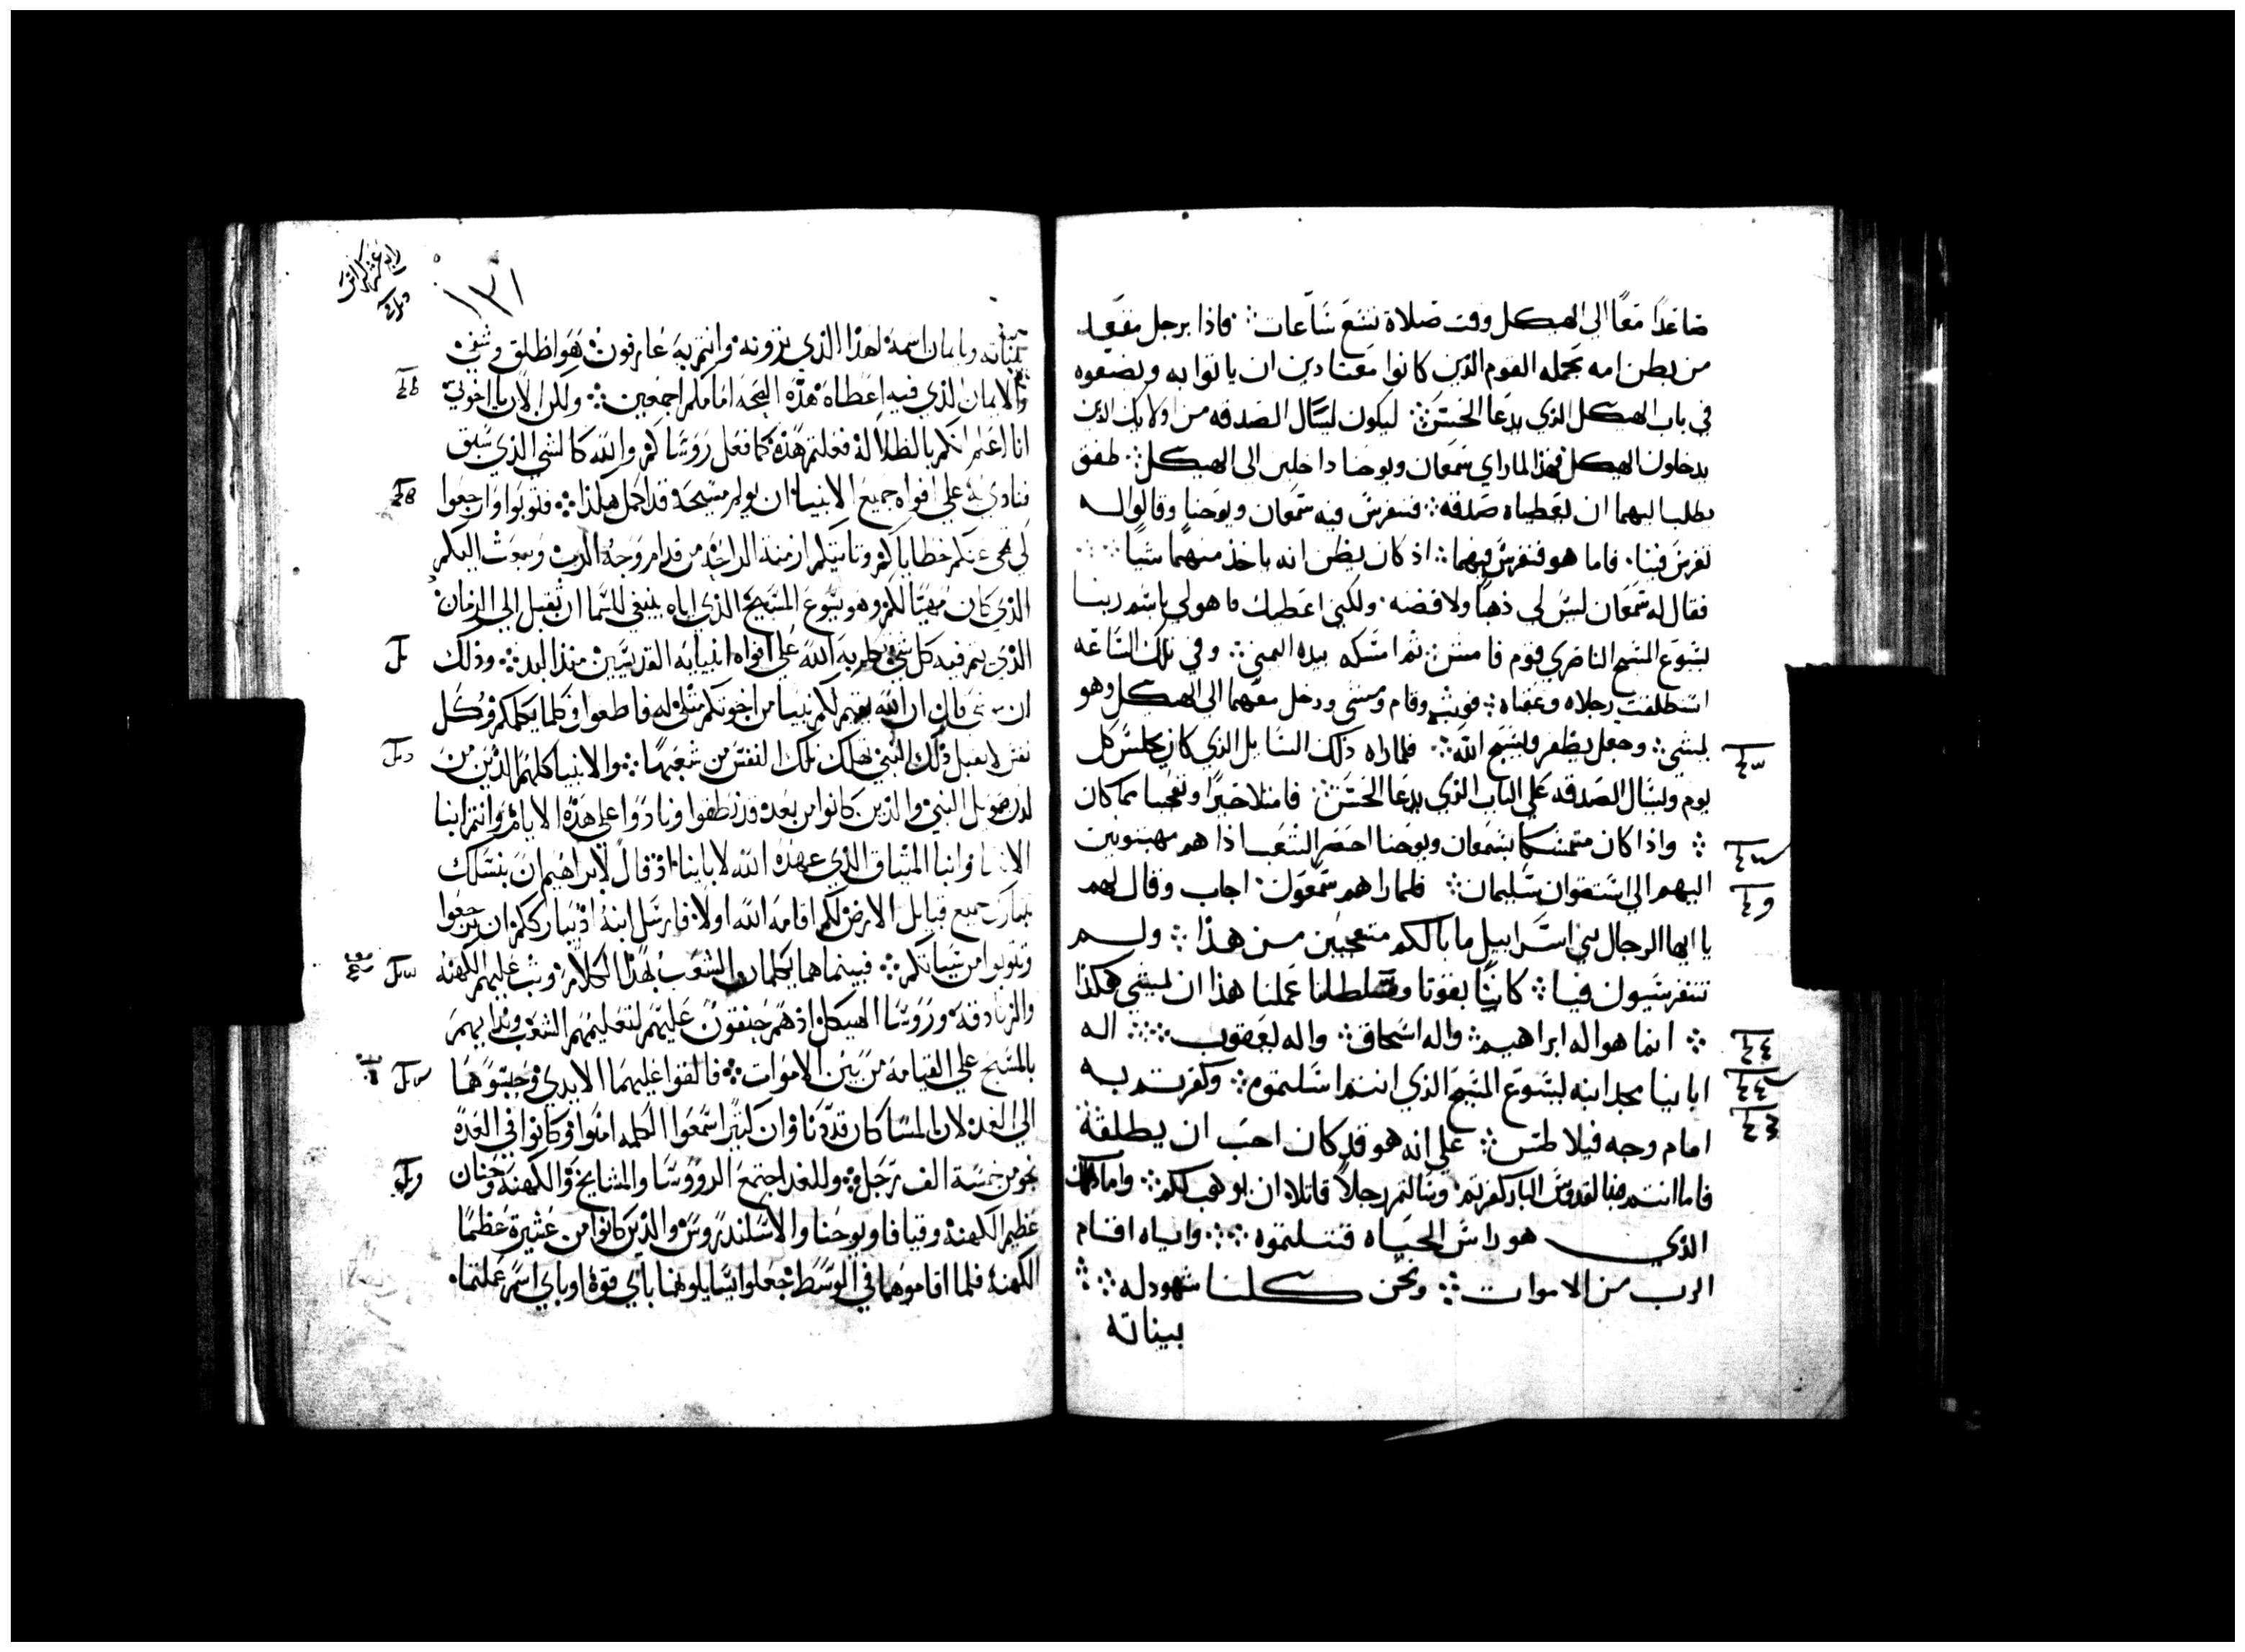 صاعدا معا الى الهيكل وقت صلاة تسع ساعات ⁘ فاذا برجل مقعد
من بطن امه تحمله القوم الذين كانوا معتادين ان ياتوا به ويضعوه
في باب الهيكل الذي يدعا الحسن ⁘ ليكون يسال الصدقه من اولايك الذين
يدخلون الهيكل فهذا لما راي سمعان ويوحنا داخلين الى الهيكل ⁘ طفق
يطلب اليهما ان يعطياه صدقة ⁘ فتفرس فيه سمعان ويوحنا وقالوا له
تفرس فينا ٠ فاما هو فتفرس فيهما ⁘ اذ كان يظن انه ياخذ منهما شيا ⁘
فقال له سمعان ليس لي ذهبا ولا فضه ٠ ولكني اعطيك ما هو لي باسم ربنا
يسوع المسيح الناصري قوم فامش ⁘ ثم امسكه بيده اليمني ⁘ وفي تلك الساعه
استطلقت رجلاه وعقباه ⁘ فوثب وقام ومشي ودخل معهما الى الهيكل وهو
يمشي ⁘ وجعل يطفر ويسبح الله ⁘ فلما راه ذلك السايل الذي كان يجلس كل
يوم ويسال الصدقه على الباب الذي يدعا الحسن ⁘ فامتلا حيرا وتعجبا مما كان
⁘ واذا كان متمسكا بسمعان ويوحنا احضر الشعب اذا هم مهبتوتين
اليهم الي استقوان سليمان ⁘ فلما راهم سمعون ٠ اجاب وقال لهم
يا ايها الرجال بني اسراييل ما بالكم متعجبين من هذا ⁘ ولم
تتفرسون فينا ⁘ كاننا بقوتنا وسلطاننا عملنا هذا ان يمشي هكذا
⁘ انما هو اله ابراهيم ⁘ واله اسحاق ⁘ واله يعقوب ⁘⁘ اله
ابايينا مجد ابنه يسوع المسيح الذي انتم اسلمتوه ⁘ وكفرتم به
امام وجه فيلاطس ⁘ على انه هو قد كان احب ان يطلقه
فاما انتم فبالقدوس البار كفرتم ٠ وسالتم رجلا قاتلا ان يوهب لكم ⁘ واما
الذي هو راس الحياه قتلتموه ⁘⁘ واياه اقام
الرب من الاموات ⁘ ونحن كلنا شهود له ⁘⁘
بيناته
١٣١
وبايمان اسمه لهذا الذي ترونه وانتم به عارفون هو اطلق وشفي
والايمان الذي فيه اعطاه هذه الصحه امامكم اجمعين ⁘ ولكن الان يا اخوتي
انا اعلم انكم بالظلاله فعلتم هذه كما فعل روساكم والله كالشي الذي سبق
فنادي به علي افواه جميع الانبيا ان يولم مسيحه قد اكمل هكذا ⁘ فتوبوا وارجعوا
لكي تمحى عنكم خطاياكم وتاتيكم ازمنة الراحه من قدام وجه الرب ويبعث اليكم
الذي كان مهيا لكم وهو يسوع المسيح الذي اياه ينبغي للسما ان تقبل الي الزمان
الذي يتم فيه كل شي تكلم به الله علي افواه انبيايه القديسين منذ البد ⁘ وذلك
ان موسى قال ان الله يقيم لكم نبيا من اخوتكم مثلي له فاطيعوا وكلما يكلمكم وكل
نفس لا تقبل ذلك النبي تهلك تلك النفس من شعبها ⁘ والانبيا كلهم الذين من
لدن صمويل النبي والذين كانوا من بعده قد نطقوا ونادوا علي هذه الايام وانتم ابنا
الانبيا وابنا الميثاق الذي عهده الله لاباينا ٠ اذ قال لابراهيم ان بنسلك
يتبارك جميع قبايل الارض لكم اقامه الله اولا فارسل ابنه اذ يبارككم ان رجعوا
وتتوبوا من سياتكم ⁘ فبينما هما يكلمان الشعب بهذا الكلام وثب عليهم الكهنه
والزنادقه وروسا الهيكل اذهم حنقون عليهم لتعليمهم الشعب وندايهم
بالمسيح علي القيامه من بين الاموات ⁘ فالقوا عليهما الايدي وحبسوهما
الي الغد لان المسا كان قد دنا وان كثيرا سمعوا الكلمه امنوا وكانوا في العده
نحو من خمسة الف رجل ⁘ وللغد اجتمع الرووسا والمشايخ والكهنه وحنان
عظيم الكهنه وقيافا ويوحنا والاسلندروس والذين كانوا من عشيرة عظما
الكهنة فلما اقاموهما في الوسط جعلوا يسايلوهما باي قوة او باي اسم عملتما ٠